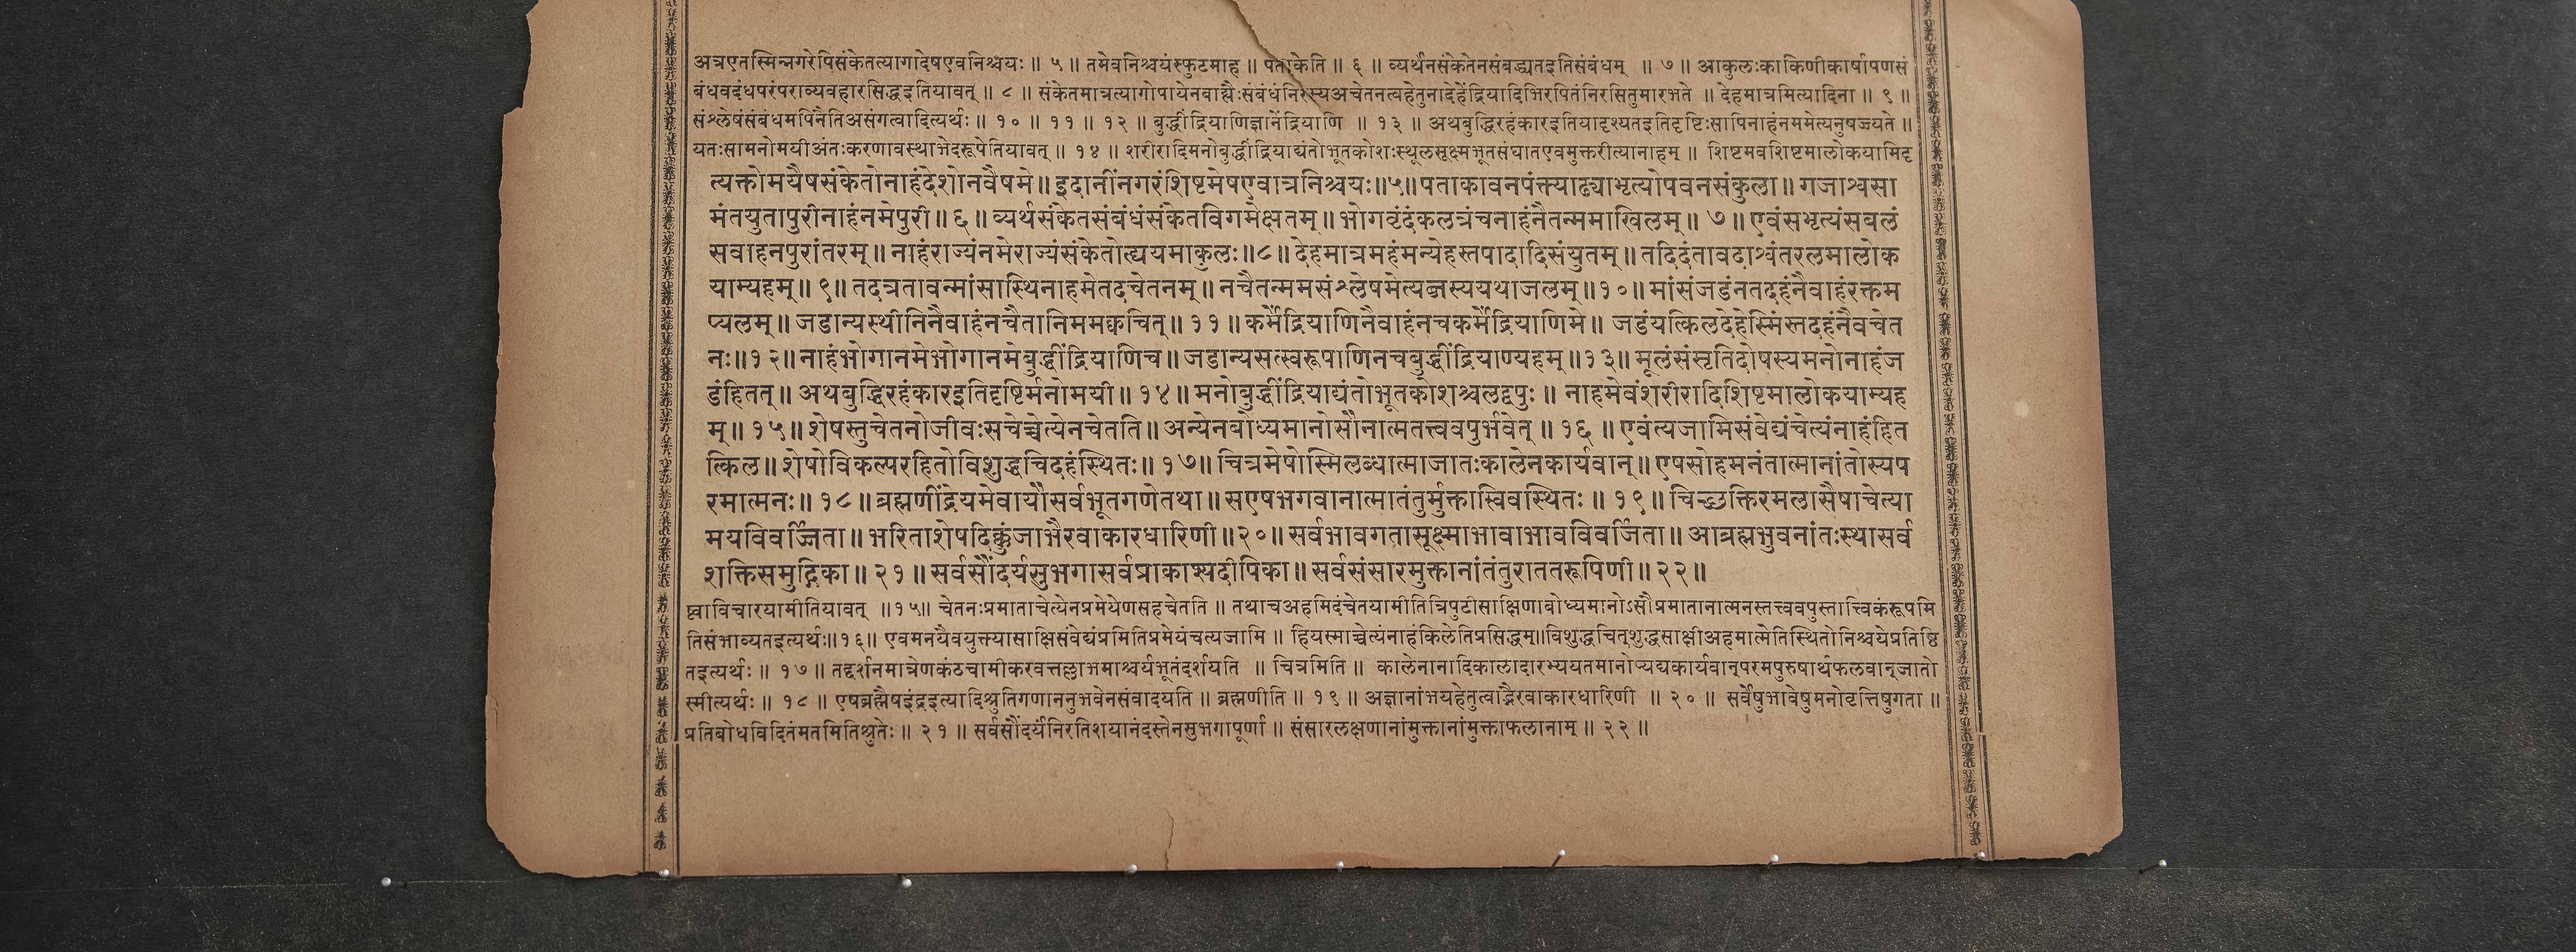 अत्रएतस्मिन्नगरेपिसंकेतत्यागादेषएवनिश्चयः ॥ ५ ॥ तमेवनिश्चयंस्फुटमाह ॥ पताकेति ॥ ६ ॥ व्यर्थेनसंकेतेनसंबद्ध्यतइतिसंबंधम् ॥ ७ ॥ आकुलःकाकिणीकार्षापणसं
बंधवदंधपरंपराव्यवहारसिद्धइतियावत् ॥ ८ ॥ संकेतमात्रत्यागोपायेनबाह्यैःसंबंधंनिरस्यअचेतनत्वहेतुनादेहेंद्रियादिभिरपितंनिरसितुमारभते ॥ देहमात्रमित्यादिना ॥ ९ ॥
संश्लेषंसंबंधमपिनैतिअसंगत्वादित्यर्थः ॥ १० ॥ ११ ॥ १२ ॥ बुद्धींद्रियाणिज्ञानेंद्रियाणि ॥ १३ ॥ अथबुद्धिरहंकारइतियादृश्यतइतिदृष्टिःसापिनाहंनममेत्यनुषज्यते ॥
यतःसामनोमयीअंतःकरणावस्थाभेदरूपेतियावत् ॥ १४ ॥ शरीरादिमनोबुद्धींद्रियाद्यंतोभूतकोशःस्थूलसूक्ष्मभूतसंघातएवमुक्तरीत्यानाहम् ॥ शिष्टमवशिष्टमालोकयामिदृ
त्यक्तोमयैषसंकेतोनाहंदेशोनवैषमे ॥ इदानींनगरंशिष्टमेषएवात्रनिश्चयः ॥५॥ पताकावनपंक्त्याढ्याभृत्योपवनसंकुला ॥ गजाश्वसा
मंतयुतापुरीनाहंनमेपुरी ॥ ६ ॥ व्यर्थसंकेतसंबंधंसंकेतविगमेक्षतम् ॥ भोगवृंदंकलत्रंचनाहंनैतन्ममाखिलम् ॥ ७ ॥ एवंसभृत्यंसबलं
सवाहनपुरांतरम् ॥ नाहंराज्यंनमेराज्यंसंकेतोह्ययमाकुलः ॥८॥ देहमात्रमहंमन्येहस्तपादादिसंयुतम् ॥ तदिदंतावदाश्वंतरलमालोक
याम्यहम् ॥ ९ ॥ तदत्रतावन्मांसास्थिनाहमेतदचेतनम् ॥ नचैतन्ममसंश्लेषमेत्यब्जस्ययथाजलम् ॥१०॥ मांसंजडंनतदहंनैवाहंरक्तम
प्यलम् ॥ जडान्यस्थीनिनैवाहंनचैतानिममक्वचित् ॥ ११ ॥ कर्मेंद्रियाणिनैवाहंनचकर्मेंद्रियाणिमे ॥ जडंयत्किलदेहेस्मिंस्तदहंनैवचेत
नः ॥१२॥ नाहंभोगानमेभोगानमेबुद्धींद्रियाणिच ॥ जडान्यसत्स्वरूपाणिनचबुद्धींद्रियाण्यहम् ॥१३॥ मूलंसंसृतिदोषस्यमनोनाहंज
डंहितत् ॥ अथबुद्धिरहंकारइतिदृष्टिर्मनोमयी ॥ १४ ॥ मनोबुद्धींद्रियाद्यंतोभूतकोशश्चलद्वपुः ॥ नाहमेवंशरीरादिशिष्टमालोकयाम्यह
म् ॥ १५ ॥ शेषस्तुचेतनोजीवःसचेच्चेत्येनचेतति ॥ अन्येनबोध्यमानोसौनात्मतत्त्ववपुर्भवेत् ॥ १६ ॥ एवंत्यजामिसंवेद्यंचेत्यंनाहंहित
त्किल ॥ शेषोविकल्परहितोविशुद्धचिदहंस्थितः ॥ १७ ॥ चित्रमेषोस्मिलब्धात्माजातःकालेनकार्यवान् ॥ एषसोहमनंतात्मानांतोस्यप
रमात्मनः ॥ १८ ॥ ब्रह्मणींद्रेयमेवायौसर्वभूतगणेतथा ॥ सएषभगवानात्मातंतुर्मुक्तास्विवस्थितः ॥ १९ ॥ चिच्छक्तिरमलासैषाचेत्या
मयविवर्ज्जिता ॥ भरिताशेषदिक्कुंजाभैरवाकारधारिणी ॥२०॥ सर्वभावगतासूक्ष्माभावाभावविवर्जिता ॥ आब्रह्मभुवनांतःस्थासर्व
शक्तिसमुद्गिका ॥ २१ ॥ सर्वसौंदर्यसुभगासर्वप्राकाश्यदीपिका ॥ सर्वसंसारमुक्तानांतंतुराततरूपिणी ॥ २२ ॥
ष्ट्वाविचारयामीतियावत् ॥१५॥ चेतनःप्रमाताचेत्येनप्रमेयेणसहचेतति ॥ तथाचअहमिदंचेतयामीतित्रिपुटीसाक्षिणाबोध्यमानोऽसौप्रमातानात्मनस्तत्त्ववपुस्तात्त्विकंरूपमि
तिसंभाव्यतइत्यर्थः ॥१६॥ एवमनयैवयुक्त्यासाक्षिसंवेद्यंप्रमितिप्रमेयंचत्यजामि ॥ हियस्माच्चेत्यंनाहंकिलेतिप्रसिद्धम् ॥ विशुद्धचित्शुद्धसाक्षीअहमात्मेतिस्थितोनिश्चयेप्रतिष्ठि
तइत्यर्थः ॥ १७ ॥ तद्दर्शनमात्रेणकंठचामीकरवत्तल्लाभमाश्चर्यभूतंदर्शयति ॥ चित्रमिति ॥ कालेनानादिकालादारभ्ययतमानोप्यद्यकार्यवान्परमपुरुषार्थफलवान्जातो
स्मीत्यर्थः ॥ १८ ॥ एषब्रह्मैषइंद्रइत्यादिश्रुतिगणाननुभवेनसंवादयति ॥ ब्रह्मणीति ॥ १९ ॥ अज्ञानांभयहेतुत्वाद्भैरवाकारधारिणी ॥ २० ॥ सर्वेषुभावेषुमनोवृत्तिषुगता ॥
प्रतिबोधविदितंमतमितिश्रुतेः ॥ २१ ॥ सर्वसौंदर्यंनिरतिशयानंदस्तेनसुभगापूर्णा ॥ संसारलक्षणानांमुक्तानांमुक्ताफलानाम् ॥ २२ ॥